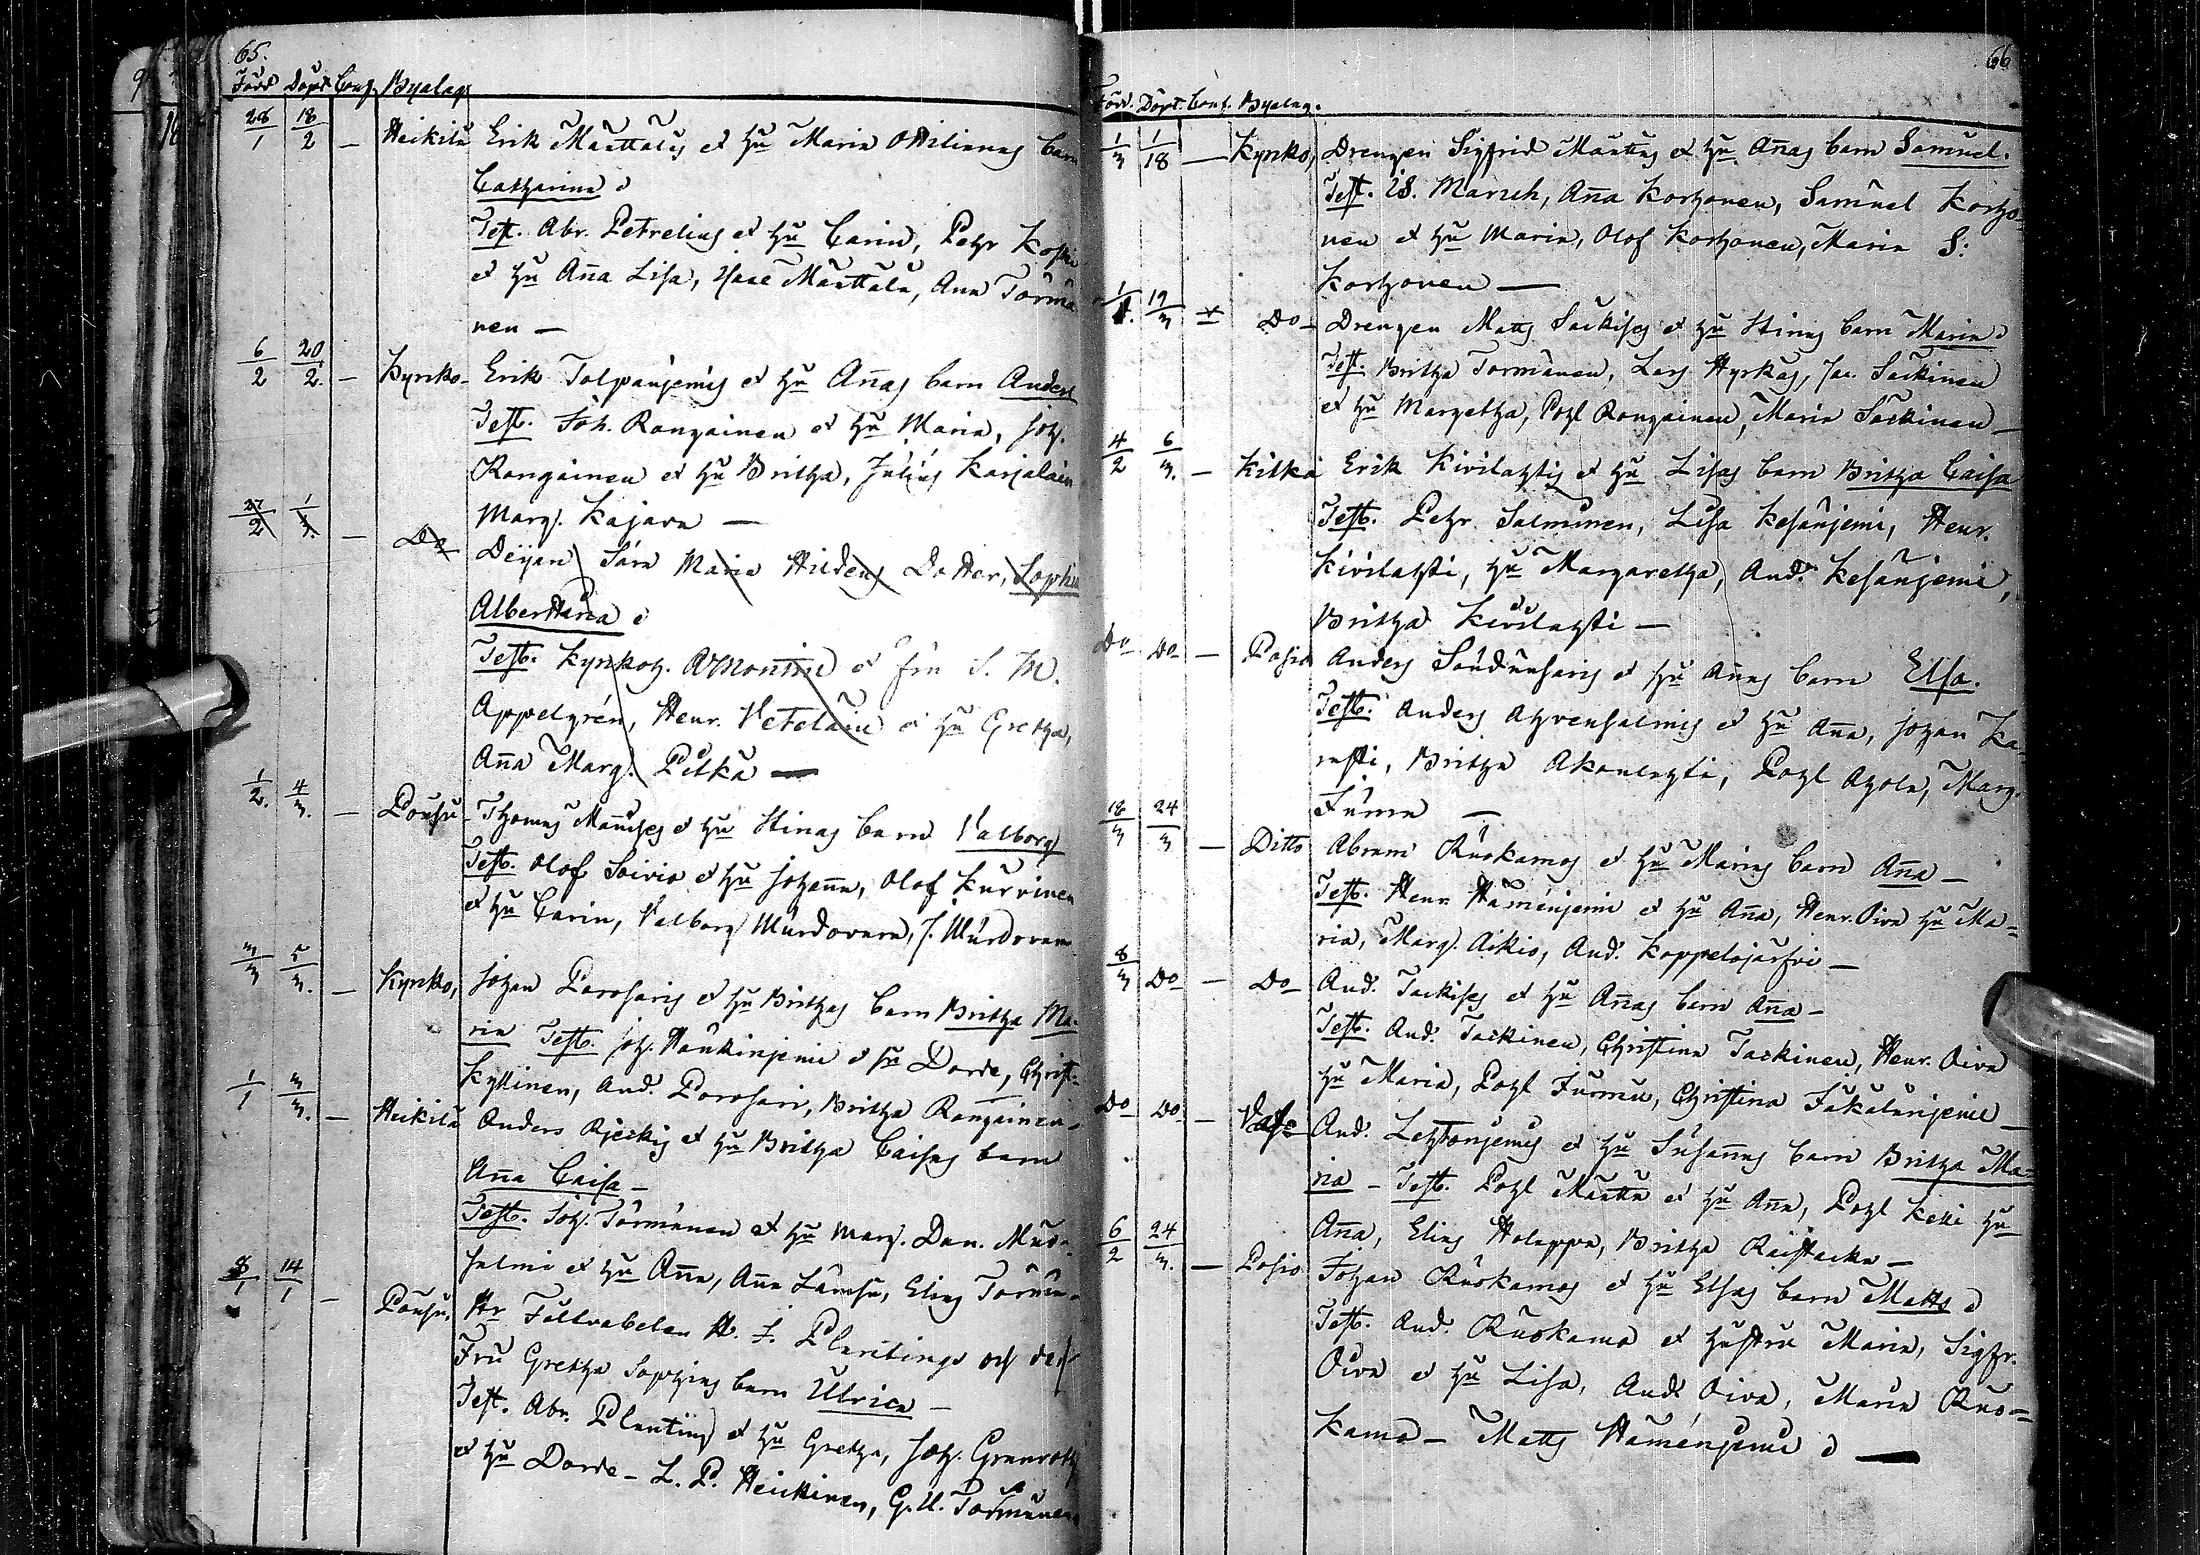 65.
Född Döpt Conf. Byalag
28/1 18/2 — Heikilä Erik Määttälis et Hu Maria Wilinnas barn
Catharina
Test. Abr. Petrelius et Hu Carin, Pehr
et Hu Anna Lisa, Isaac Määttälä, Ana Törmä
nen —
6/2 20/2. — Kynko- Erik Tolpaniemis et Hu Annas barn Anders
Test. Joh. Rongainen et Hu Maria, Joh.
Rongainen et Hu Britha, Julius Karjalain
Marg. Kajava —
27/2 1/3. — Do Deijan Sara Maria Hildens Dotter, Sophia
Albertina
Test. Kynkoh. et fru S. M.
Appelgrén, Henr. Vetelain et Hu Gretha,
Anna Marg. Pitkä —
1/2. 4/3. — Pousu- Thomas et Hu Stinas barn Valborg
Test. Olof Soivio et Hu Johanna, Olof Kurvinen
et Hu Carin, Valborg Murdovara, J. Murdovara
3/3 5/3. — Kynko, Johan Porosaris et Hu Brithas barn Britha Ma-
ria Test. Joh. Haukiniemi et Hu Dorde, Christ.
Kyllinen, And. Porosari, Britha Rongainen —
1/1 3/3. — Heikilä Anders et Hu Britha Caisas barn
Anna Caisa —
Test. Joh. Törmänen et Hu Marg. Dan. Mus-
salmi et Hu Anna, Anna Lämsä, Elias Törmän-
8/1 14/1 — Pousu. Hr Fältvebelen H. J. Plantings och dess
Fru Gretha Sophias barn Ulrica —
Test. Abr. Plantin et Hu Gretha, Joh. Granroth
et Hu Dorde — L. P. Heickinen, G. U. Törmänen
66
Född. Döpt. Conf. Byalag.
1/3 1/18 — Kynko, Drengen Sigfrid Määttas et Hu Annas barn Samuel.
Test. Is. March, Anna Korhonen, Samuel Korho-
nen et Hu Maria, Olof Korhonen, Maria S:
Korhonen —
19/3 Do — Drengen Matts Säckises et Hu Stinas barn Maria
Test. Britha Tormänen, Lars Hyrkäs, Jac. Säckinen
et Hu Margetha, Pohl Rongainen, Maria Säckinen —
4/2 6/3. — Kitka Erik Kivilahtis et Hu Lisas barn Britha Caisa
Test. Pehr. Salminen, Lisa Kesäniemi, Henr.
Kivilahti, Hu Margaretha, And. Kesäniemi,
Britha Kivilahti —
Do Do — Posio Anders et Hu Annas barn Elsa.
Test. Anders Ahvensalmis et Hu Anna, Johan Ka-
rusti, Britha Akonlahti, Pohl Ahola, Marg.
Furma —
18/3 24/3 — Ditto Abram Ruokamos et Hu Marias barn Anna —
Test. Henr. Hämeniemi et Hu Anna, Henr. Oiva Hu Ma-
ria, Marg. Aikio, And. Koppelojärfvi —
8/3 Do — Do And. Tackises et Hu Annas barn Anna —
Test. And. Tackinen, Christina Tackinen, Henr. Oiva
Hu Maria, Pohl Furmu, Christina
Do Do — And. Lehtoniemis et Hu Susannas barn Britha Ma-
ria — Test. Pohl Määttä et Hu Anna, Pohl Hu
Anna, Elias Holappa, Britha —
6/2 24/3. — Posio Johan Ruokamos et Hu Elsas barn Matts
Test. And. Ruokamo et Hustru Maria, Sigfr.
Oiva et Hu Lisa, And. Oiva, Maria Ruo-
kamo — Matts Hämeniemi —